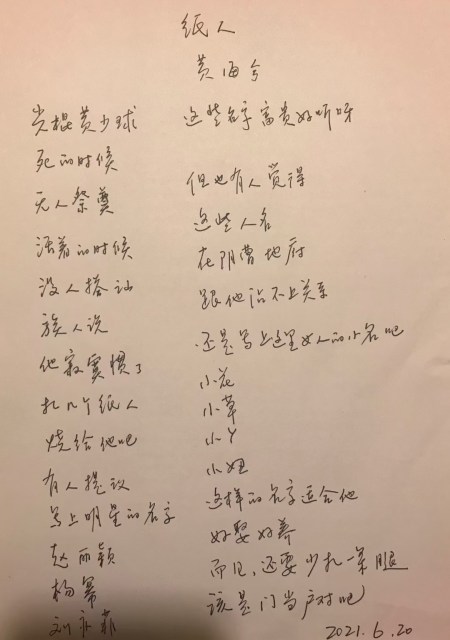 纸人
黄海兮
光棍黄少球
死的时候
无人祭奠
活着的时候
没人搭讪
族人说
他寂寞惯了
扎几个纸人
烧给他吧
有人提议
写上明星的名字
赵丽颖
杨幂
刘亦菲
这些名字富贵好听呀
但也有人觉得
这些人名
在阴曹地府
跟他沾不上关系
还是写上这里女人的小名吧
小花
小草
小丫
小妞
这样的名字适合他
好娶好养
而且,还要少扎一条腿
该是门当户对吧
2021.6.20